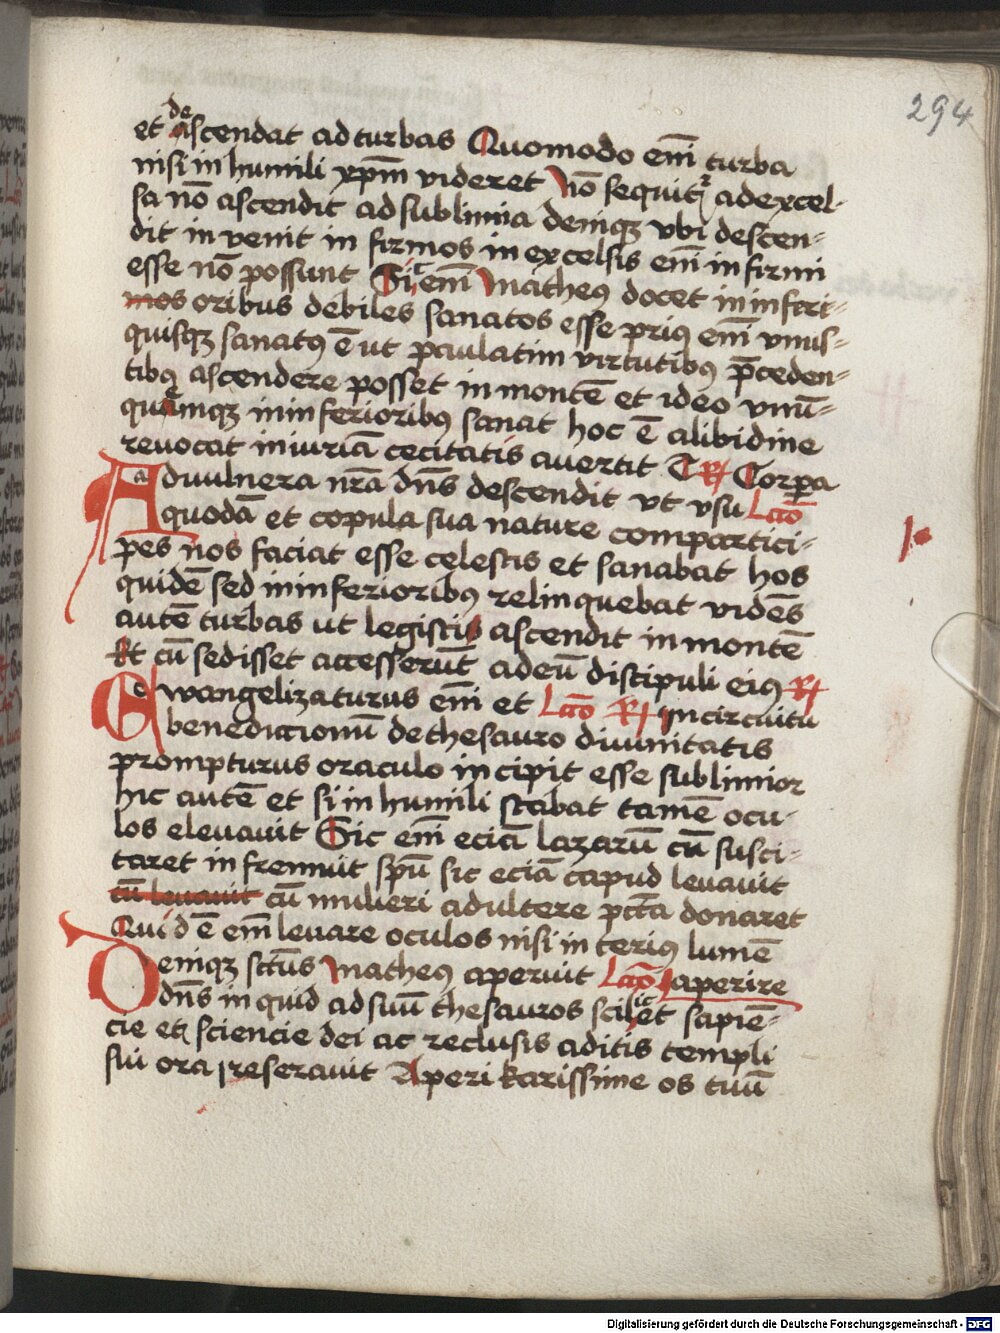 294
et de ascendat ad turbas Quomodo em̄ turba
nisi in humili xpm̄ videret Nō sequitꝛ ad excel-
sa nō ascendit ad sublimia deniqꝫ vbi descen-
dit in venit in firmos in excelsis em̄ in firmi
esse nō possunt Sic em̄ Matheꝰ docet in inferi-
mos oribus debiles sanatos esse priꝰ em̄ vnus-
quisqꝫ sanatꝰ ē ut paulatim virtutibꝰ p̄ceden-
tibꝰ ascendere posset in montē et ideo vnū-
quēmqꝫ in inferioribꝰ sanat hoc ē alibidine
reuocat iniuriā cecitatis auertit T ꝶ Corpa
Ad vulnera nr̄a dn̄s descendit vt vsu Lc̄ō
quodā et copula sua nature compartici-
pes nos faciat esse celestis et sanabat hos
quidē sed in inferioribꝰ relinquebat vidēs
autē turbas ut legistis ascendit in montē
Et cū sedisset accesserūt ad eū discipuli eiꝰ ꝶ
Ewangelizaturus em̄ et Lc̄ō ꝶ In circuitu
benedictionū de thesauro diuinitatis
prompturus oraculo incipit esse sublimior
hic autē et si in humili stabat tamē ocu-
los eleuauit Sic em̄ eciā lazarū cū susci-
taret in fremuit spū sic eciā capud leuauit
cū leuauit cū mulieri adultere pctā donaret
Quid ē em̄ leuare oculos nisi in teriꝰ lumē
Deniqꝫ sctūs Matheꝰ aperuit Lc̄ō aperire
dn̄s in quid ad suū thesauros scilicet sapiē-
cie etꝫ sciencie dei ac reclusis aditis templi
sui ora reserauit Aperi karissime os tuū
Digitalisierung gefördert durch die Deutsche Forschungsgemeinschaft - DFG